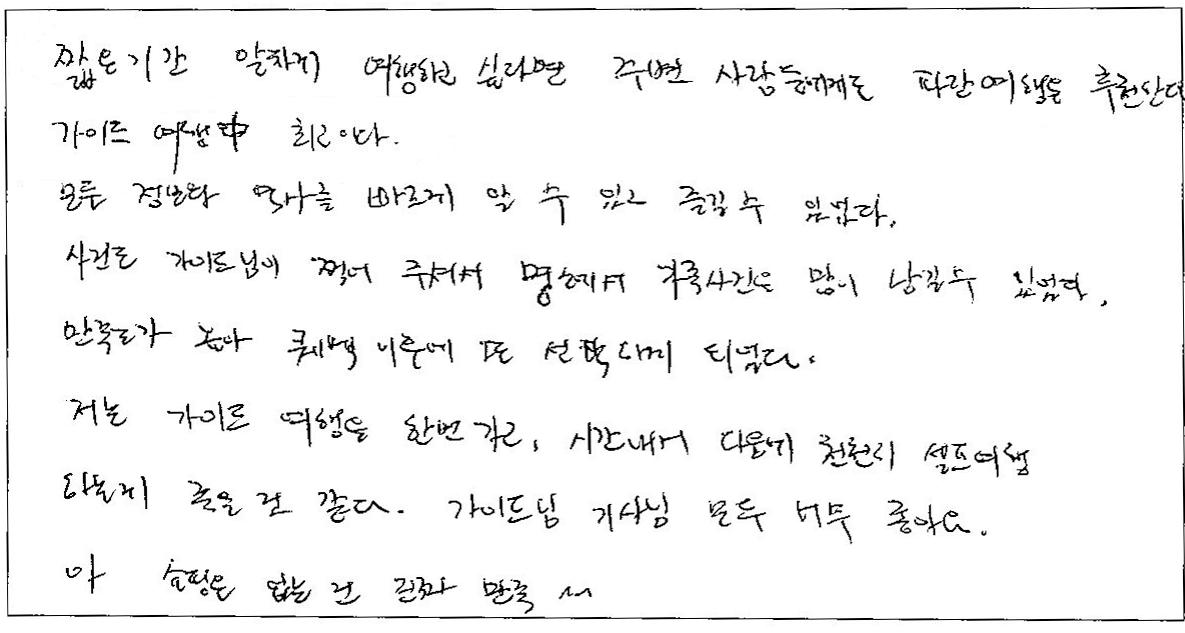 짧은기간 알차게 여행하고 싶다면 주변 사람들에게도 파란여행을 추천한다
가이드 여행中 최고이다.
모두 정보와 역사를 바르게 알 수 있고 즐길 수 있었다.
사진도 가이드님이 찍어 주셔서 명소에서 가족사진을 많이 남길수 있었다.
만족도가 높아 퀘백 이후에 또 선택하게 되었다.
저는 가이드 여행을 한번 가고, 시간내서 다음에 천천히 셀프여행
하는게 좋을 것 같다. 가이드님 기사님 모두 너무 좋아요.
아 쇼핑은 없는 건 진짜 만족